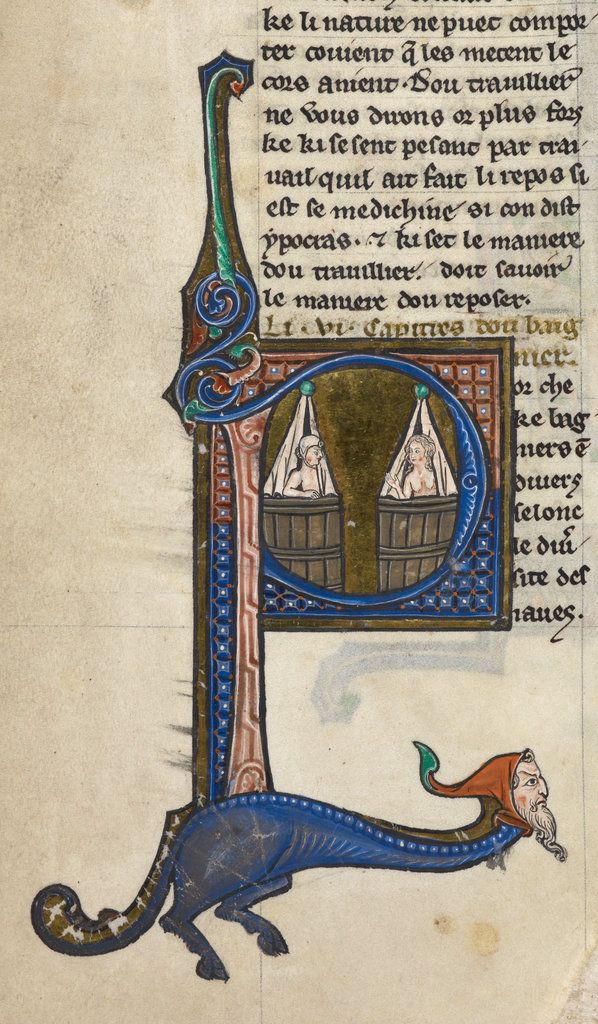 ke li nature ne puet compor
ter couient q̃ les metent le
cors anient. Dou trauillier
ne vous dirons or plus fors
ke ki se sent pesant par trai
uail quil ait fait li repos si
est se medichine si con dist
ypocras. ⁊ ki set le maniere
dou trauillier. doit sauoir
le maniere dou reposer.
Li . vi . Capitres dou baig
nier.
or che
ke bag
niers ē
diuers
selonc
le diu̾
site des
iaues.